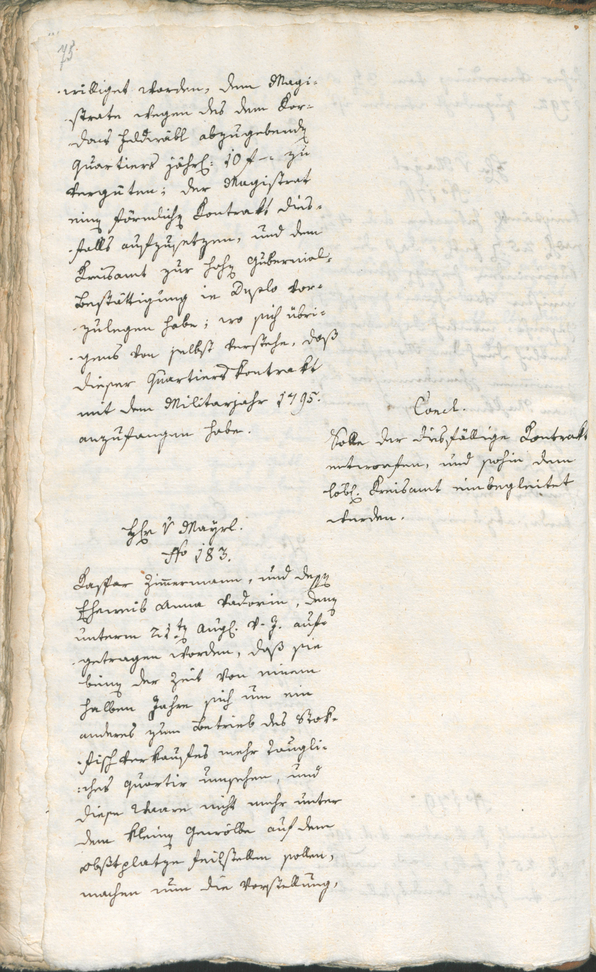 75.
williget worden, dem Magi-
strate wegen des dem Kor-
dons Feldwäbl abzugebenden
Quartiers jährl: 10 f – zu
vergüten; der Magistrat
einen förmlichen Kontrakt dies-
falls aufzusetzen, und dem
Kreisamt zur hohen Gubernial-
Bestättigung in Duplo vor-
zulegen habe; wo sich übri-
gens von selbst verstehe, daß
dieser Quartierskontrakt
mit dem Militarjahr 1795.
anzufangen habe.
Concl.
Solle der diesfällige Kontrakt
entworfen, und sohin dem
löbl. Kreisamt einbegleitet
werden.
Hr v Mayrl.
No 183.
Kaspar Zimmermann, und dessen
Eheweib Anna Vadorin, denen
unterm 21ten Augl. v. J. aufs
getragen worden, daß sie
binnen der Zeit von einem
halben Jahre sich um ein
anderes zum Betrieb des Stok-
fischverkaufes mehr taugli-
ches Quartir umsehen, und
diese Waare nicht mehr unter
dem kleinen Gewölbe auf dem
Obstplatze feilstellen sollen,
machen nun die Vorstellung,